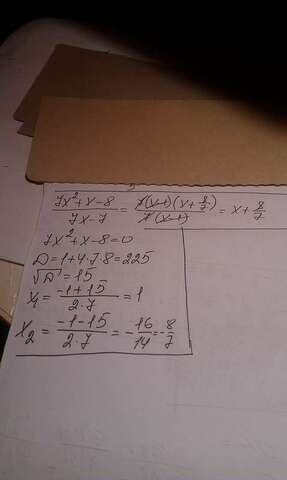 (7x²+x-8)/(7x-7) = (7(x-1)(x+8/7))/(7(x-1)) = x+8/7
7x²+x-8=0
D=1+4·7·8=225
√D=15
x₁ = (-1+15)/(2·7) = 1
x₂ = (-1-15)/(2·7) = -16/14 = -8/7